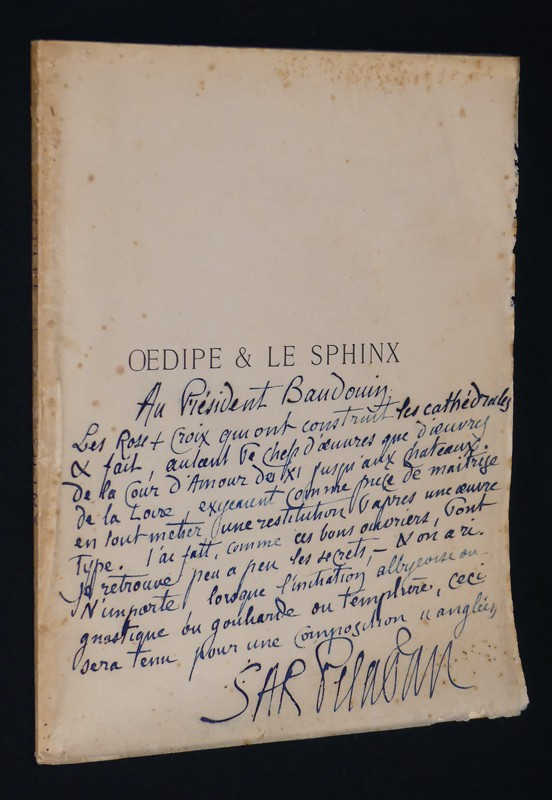 ŒDIPE & LE SPHINX
Au Président Baudouin
Les Rose + Croix qui ont construit les cathédrales
& fait, autant de chefs d'œuvres que d'œuvres
de la Cour d'Amour du XI jusqu'aux chateaux
de la Loire, exigeaient comme pièce de maitrise
en tout métier, une restitution d'après une œuvre
type. J'ai fait, comme ces bons ouvriers, dont
je retrouve peu a peu les secrets, – & on a ri.
N'importe, lorsque l'initiation albigeoise ou
gnostique ou gouliarde ou templière, ceci
sera tenu pour une composition
SAR Peladan